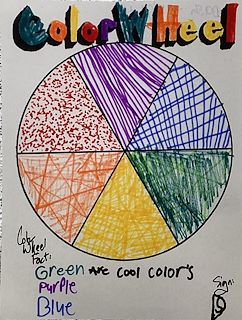 Color Wheel
Color
Wheel
Fact:
Green are cool color's
Purple
Blue
Sign: